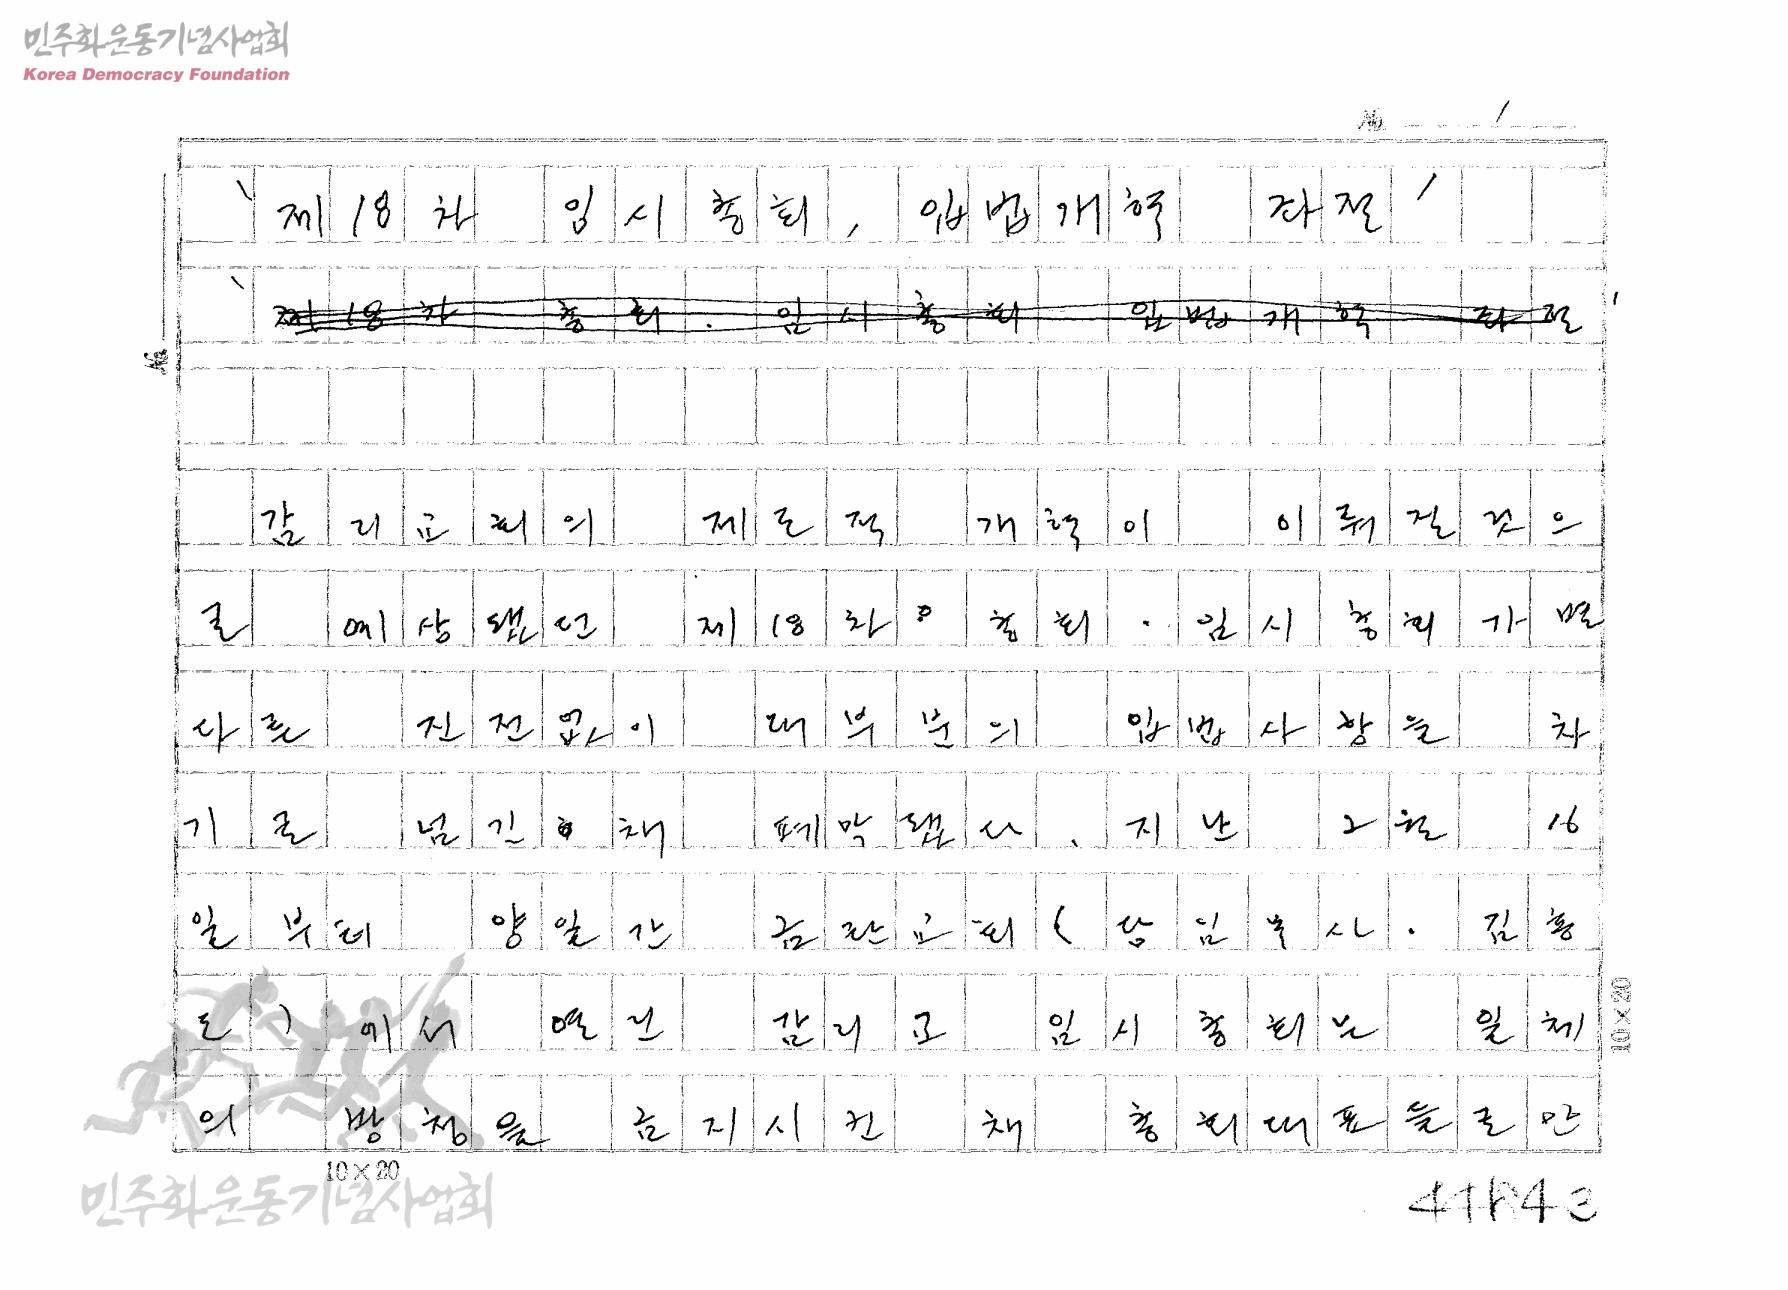 민주화운동기념사업회
Korea Democracy Foundation
No. 1
'제18차 임시총회, 입법개혁 좌절'
'제18차 총회. 임시총회 입법개혁 좌절'
No.
감리교회의 제도적 개혁이 이뤄질것으
로 예상됐던 제18차 총회·임시총회가 별
다른 진전없이 대부분의 입법사항을 차
기로 넘긴 채 폐막됐다. 지난 2월 16
일부터 양일간 금란교회(담임목사·김홍
도)에서 열린 감리교 임시총회는 일체
의 방청을 금지시킨 채 총회대표들로만
10×20
10×20
민주화운동기념사업회